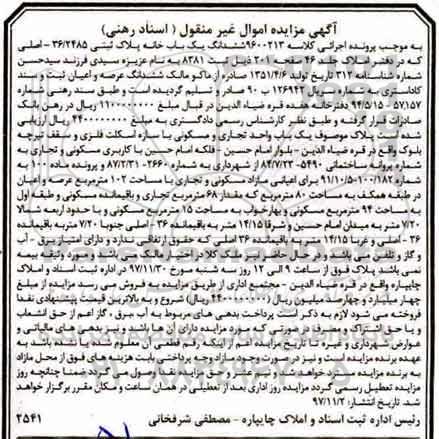 آگهی مزایده اموال غیر منقول ( اسناد رهنی )
به موجب پرونده اجرائی کلاسه ۹۶۰۰۲۱۳ ششدانگ یک باب خانه پلاک ثبتی ۳۶/۲۴۸۵ - اصلی
که در دفتر املاک جلد ۴۶ صفحه ۲۰۱ ذیل ثبت ۸۳۸۱ به نام عزیزه سیدی فرزند سیدحسن
شماره شناسنامه ۳۱۲ تاریخ تولد ۱۳۵۱/۴/۶ صادره از ماکو مالک ششدانگ عرصه و اعیان ثبت و سند
کاداستری به شماره سریال ۱۲۶۹۴۲ ب ۹۰ صادر و تسلیم گردیده است و طبق سند رهنی شماره
۵۷۱۵۷ - ۹۴/۵/۱۵ دفترخانه هفده قره ضیاء الدین در قبال مبلغ ۱۱۰۰۰۰۰۰۰۰ ریال در رهن بانک
صادرات قرار گرفته و طبق نظر کارشناس رسمی دادگستری به مبلغ ۴۴۰۰۰۰۰۰۰۰ ریال ارزیابی
شده است. پلاک موصوف یک باب واحد تجاری و مسکونی با سازه اسکلت فلزی و سقف تیرچه
بلوک واقع در قره ضیاء الدین - بلوار امام حسین - فلکه امام حسین با کاربری مسکونی و تجاری به
شماره پروانه ساختمانی ۵۴۹۰-۸۴/۷/۲۳ از شهرداری به شماره ۲۶۶۰-۸۷/۲/۳۱ و پرونده ماده ۱۰۰ به
شماره ۱۰۰/۱۸۲-۹۱/۱۰/۵ برای اعیانی مازاد مسکونی و تجاری با مساحت ۱۰۲ مترمربع عرصه و اعیان
در طبقه همکف به مساحت ۸۰ مترمربع که مقدار ۶۸ مترمربع تجاری و باقیمانده مسکونی و طبقه اول
به مساحت ۹۴ مترمربع مسکونی و بهارخواب به مساحت ۱۵ مترمربع مسکونی و با حدود اربعه شمالا
۷/۲۰ متر به میدان امام حسین و شرقا ۱۴/۱۵ متر به باقیمانده ۳۶ - اصلی جنوبا ۷/۲۰ متر به باقیمانده
۳۶ - اصلی و غربا ۱۴/۱۵ متر به باقیمانده ۳۶ اصلی که حقوق ارتفاقی ندارد و دارای امتیاز برق - آب
و گاز و تلفن می باشد و در حال حاضر ید مالک کلا در ید مالک می باشد و مورد وثیقه بیمه
نمی باشد پلاک فوق از ساعت ۹ الی ۱۲ روز سه شنبه مورخ ۹۷/۱۱/۳۰ در اداره ثبت اسناد و املاک
چایپاره واقع در قره ضیاء الدین - مجتمع اداری از طریق مزایده به فروش می رسد مزایده از مبلغ
چهار میلیارد و چهارصد میلیون ریال (۴۴۰۰۰۰۰۰۰۰ ریال) شروع و به بالاترین قیمت پیشنهادی نقدا
فروخته می شود لازم به ذکر است پرداخت بدهی های مربوط به آب ،برق ، گاز اعم از حق انشعاب
و یا حق اشتراک و مصرف در صورتی که مورد مزایده دارای آن ها باشد و نیز بدهی های مالیاتی و
عوارض شهرداری و غیره تا تاریخ مزایده اعم از اینکه رقم قطعی آن معلوم شده یا نشده باشد به
عهده برنده مزایده است و نیز در صورت وجود مازاد وجوه پرداختی بابت هزینه های فوق از محل مازاد
به برنده مزایده مسترد خواهد شد و نیم عشر و حق مزایده نقدا وصول می گردد ضمنا چنانچه روز
مزایده تعطیل رسمی گردد مزایده روز اداری بعد از تعطیلی در همان ساعت و مکان مقرر برگزار خواهد
شد. تاریخ انتشار: ۹۷/۱۱/۲
رئیس اداره ثبت اسناد و املاک چایپاره - مصطفی شرفخانی ۲۵۴۱